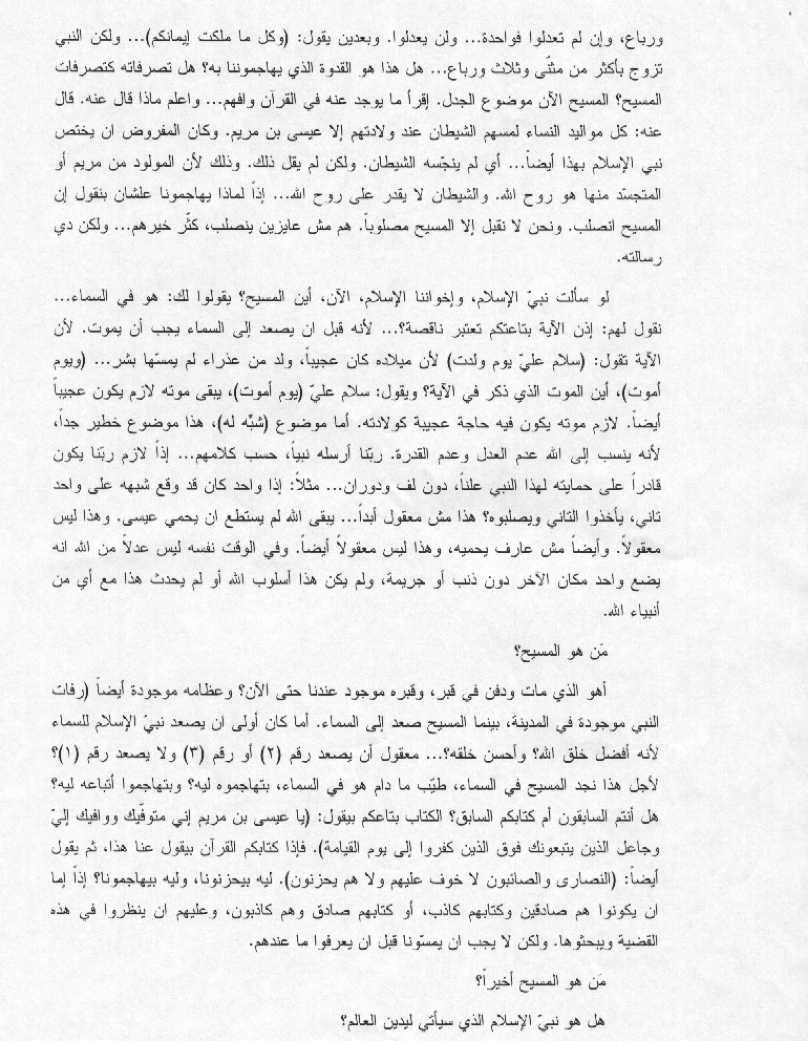 ورباع، وإن لم تعدلوا فواحدة... ولن يعدلوا. وبعدين يقول: (وكل ما ملكت إيمانكم)... ولكن النبي
تزوج بأكثر من مثنّى وثلاث ورباع... هل هذا هو القدوة الذي يهاجموننا به؟ هل تصرفاته كتصرفات
المسيح؟ المسيح الآن موضوع الجدل. إقرأ ما يوجد عنه في القرآن وافهم... واعلم ماذا قال عنه. قال
عنه: كل مواليد النساء لمسهم الشيطان عند ولادتهم إلا عيسى بن مريم. وكان المفروض ان يختص
نبي الإسلام بهذا أيضاً... أي لم ينجّسه الشيطان. ولكن لم يقل ذلك. وذلك لأن المولود من مريم أو
المتجسّد منها هو روح الله. والشيطان لا يقدر على روح الله... إذاً لماذا يهاجمونا علشان بنقول إن
المسيح اتصلب. ونحن لا نقبل إلا المسيح مصلوباً. هم مش عايزين ينصلب، كثّر خيرهم... ولكن دي
رسالته.
لو سألت نبيّ الإسلام، وإخواننا الإسلام، الآن، أين المسيح؟ يقولوا لك: هو في السماء...
نقول لهم: إذن الآية بتاعتكم تعتبر ناقصة؟... لأنه قبل ان يصعد إلى السماء يجب أن يموت. لأن
الآية تقول: (سلام عليّ يوم ولدت) لأن ميلاده كان عجيباً، ولد من عذراء لم يمسّها بشر... (ويوم
أموت)، أين الموت الذي ذكر في الآية؟ ويقول: سلام عليّ (يوم أموت)، يبقى موته لازم يكون عجيباً
أيضاً. لازم موته يكون فيه حاجة عجيبة كولادته. أما موضوع (شبِّه له)، هذا موضوع خطير جداً،
لأنه ينسب إلى الله عدم العدل وعدم القدرة. ربّنا أرسله نبياً، حسب كلامهم... إذاً لازم ربّنا يكون
قادراً على حمايته لهذا النبي علناً، دون لف ودوران... مثلاً: إذا واحد كان قد وقع شبهه على واحد
تاني، يأخذوا التاني ويصلبوه؟ هذا مش معقول أبداً... يبقى الله لم يستطع ان يحمي عيسى. وهذا ليس
معقولاً. وأيضاً مش عارف يحميه، وهذا ليس معقولاً أيضاً. وفي الوقت نفسه ليس عدلاً من الله انه
يضع واحد مكان الآخر دون ذنب أو جريمة، ولم يكن هذا أسلوب الله أو لم يحدث هذا مع أي من
أنبياء الله.
مَن هو المسيح؟
أهو الذي مات ودفن في قبر، وقبره موجود عندنا حتى الآن؟ وعظامه موجودة أيضاً (رفات
النبي موجودة في المدينة، بينما المسيح صعد إلى السماء. أما كان أولى ان يصعد نبيّ الإسلام للسماء
لأنه أفضل خلق الله؟ وأحسن خلقه؟... معقول أن يصعد رقم (٢) أو رقم (٣) ولا يصعد رقم (١)؟
لأجل هذا نجد المسيح في السماء، طيّب ما دام هو في السماء، بتهاجموه ليه؟ وبتهاجموا أتباعه ليه؟
هل أنتم السابقون أم كتابكم السابق؟ الكتاب بتاعكم بيقول: (يا عيسى بن مريم إني متوفّيك ووافيك إليّ
وجاعل الذين يتبعونك فوق الذين كفروا إلى يوم القيامة). فإذا كتابكم القرآن بيقول عنا هذا، ثم يقول
أيضاً: (النصارى والصائبون لا خوف عليهم ولا هم يحزنون). ليه بيحزنونا، وليه بيهاجمونا؟ إذاً إما
ان يكونوا هم صادقين وكتابهم كاذب، أو كتابهم صادق وهم كاذبون، وعليهم ان ينظروا في هذه
القضية ويبحثوها. ولكن لا يجب ان يمسّونا قبل ان يعرفوا ما عندهم.
مَن هو المسيح أخيراً؟
هل هو نبيّ الإسلام الذي سيأتي ليدين العالم؟